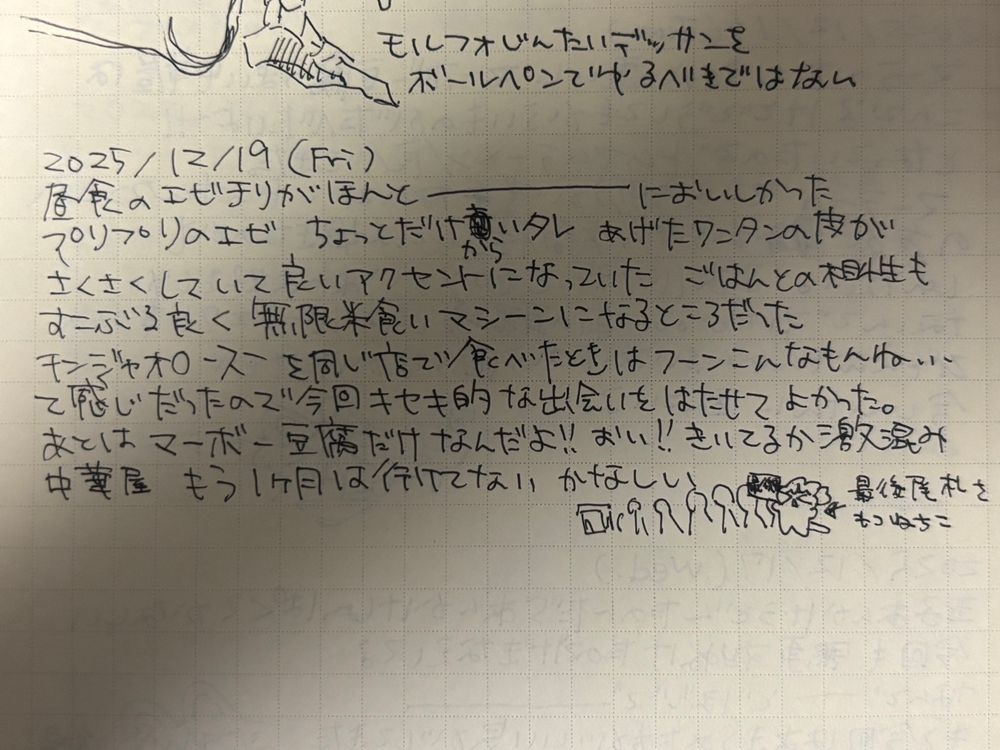 モルフォじんたいデッサンを
ボールペンでやるべきではない
2025/12/19 (Fri)
昼食のエビチリがほんと――――――においしかった
プリプリのエビ ちょっとだけ
いタレ あげたワンタンの皮が
から
さくさくしていて良いアクセントになっていた ごはんとの相性も
すこぶる良く無限米食いマシーンになるところだった
チンジャオロースーを同じ店で食べたときはフーンこんなもんね...
て感じだったので今回キセキ的な出会いをはたせてよかった。
あとはマーボー豆腐だけなんだよ!! おい!! きいてるか激混み
中華屋 もう1ヶ月は行けてない かなしい
最後尾札を
もつねちこ